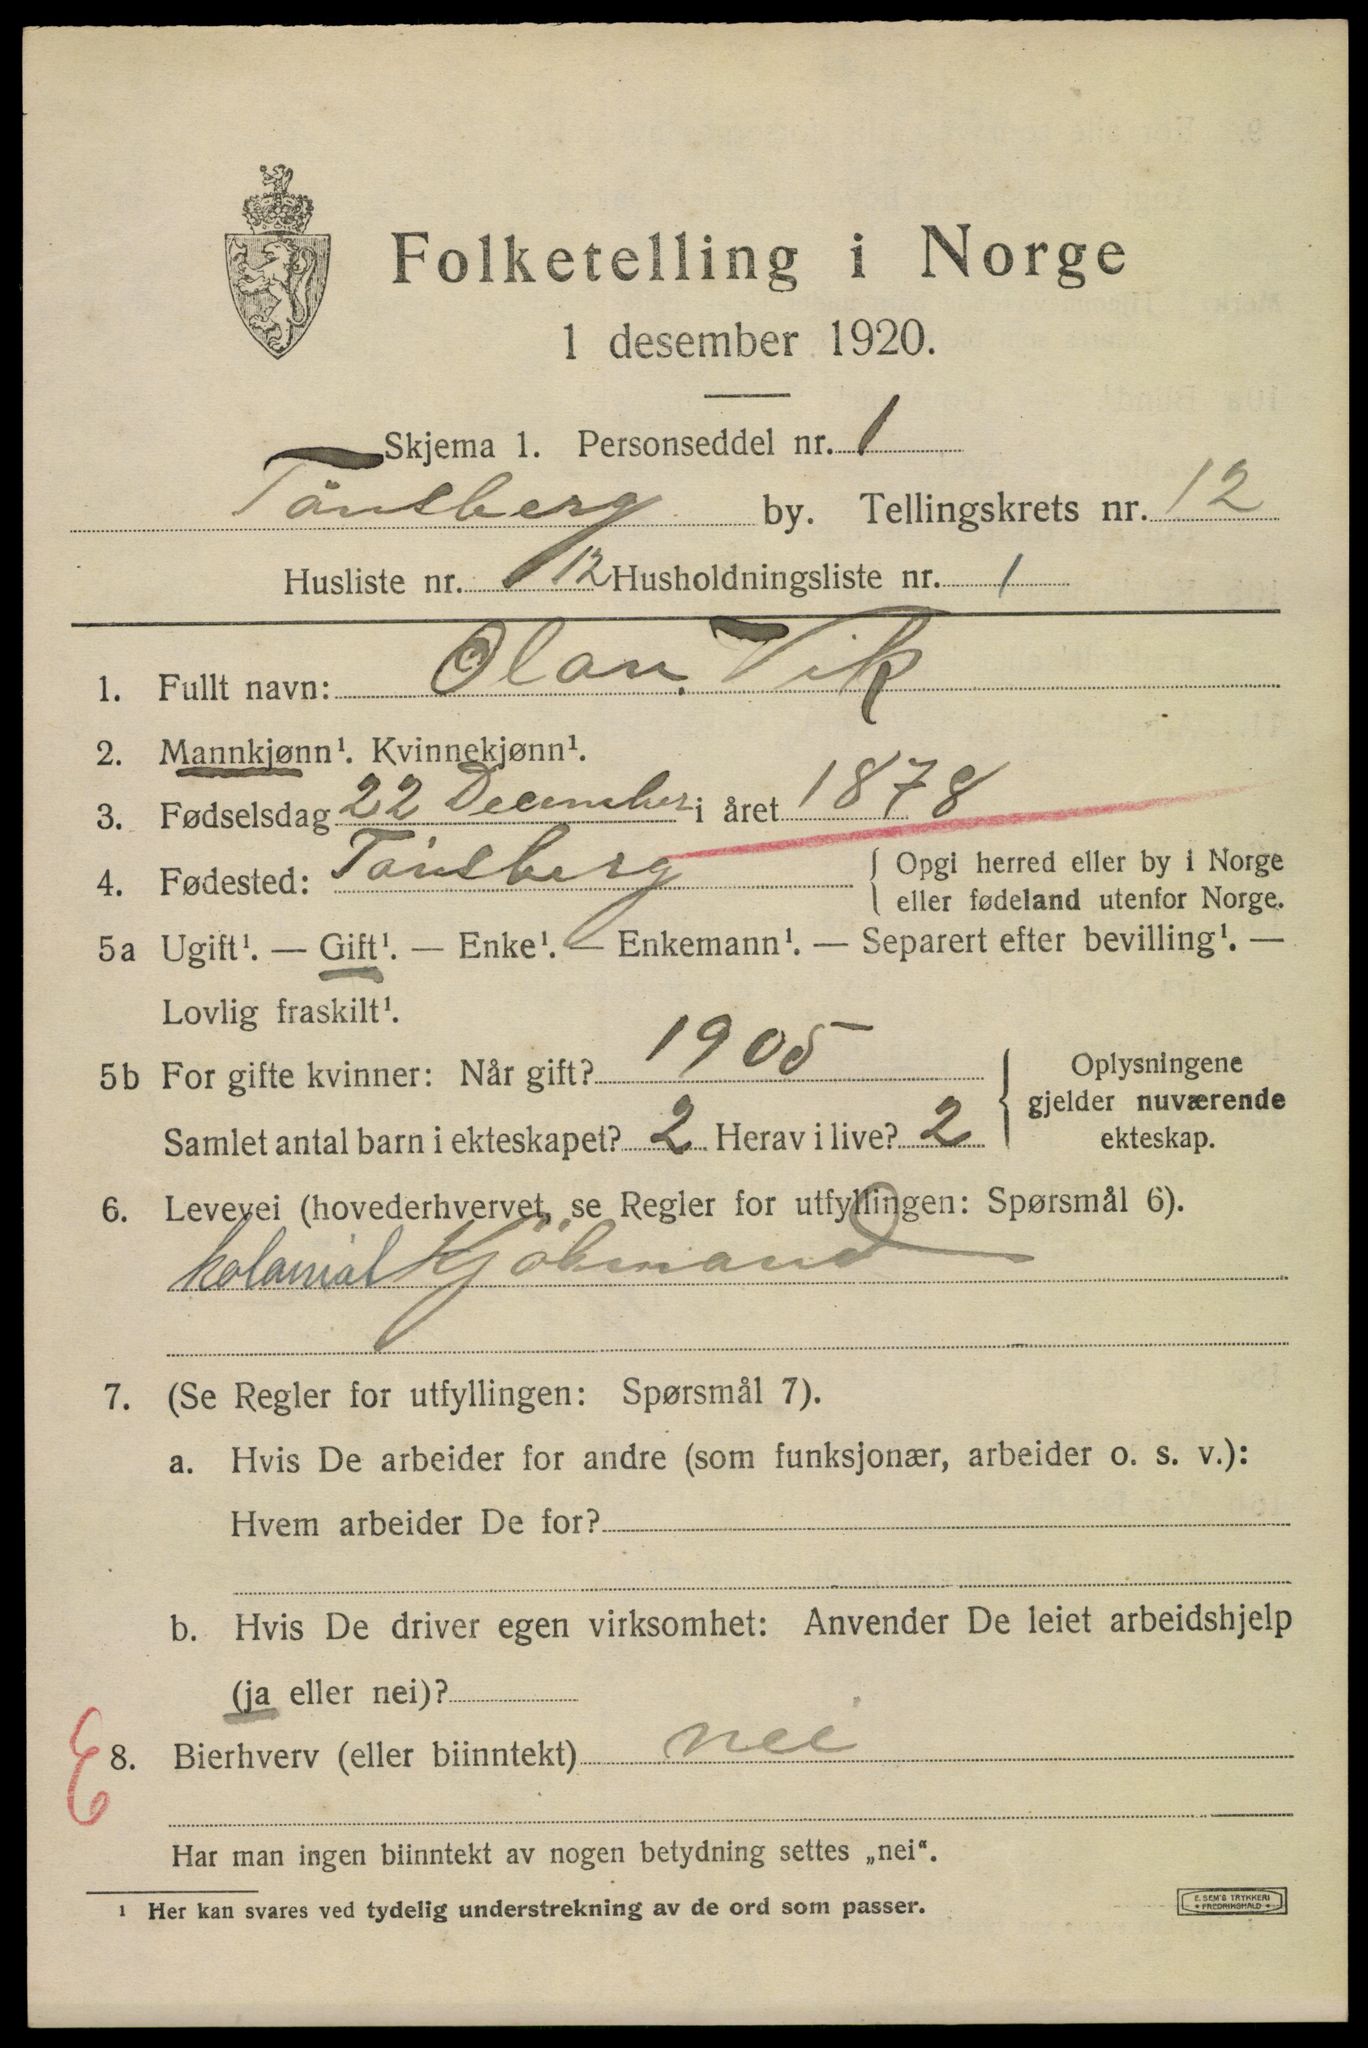 Folketelling i Norge
1 desember 1920.
Skjema 1. Personseddel nr. 1
Tönsberg by. Tellingskrets nr. 12
Husliste nr. 12 Husholdningsliste nr. 1
1. Fullt navn: Olan. Vik
2. Mannkjønn¹. Kvinnekjønn¹.
3. Fødselsdag 22 December i året 1878
4. Fødested: Tönsberg { Opgi herred eller by i Norge
eller fødeland utenfor Norge.
5a Ugift¹. — Gift¹. — Enke¹. — Enkemann¹. — Separert efter bevilling¹. —
Lovlig fraskilt¹.
5b For gifte kvinner: Når gift? 1905
Samlet antal barn i ekteskapet? 2 Herav i live? 2
Oplysningene
gjelder nuværende
ekteskap.
6. Levevei (hovederhvervet, se Regler for utfyllingen: Spørsmål 6).
kolonial Kjöbmand
7. (Se Regler for utfyllingen: Spørsmål 7).
a. Hvis De arbeider for andre (som funksjonær, arbeider o. s. v.):
Hvem arbeider De for?
b. Hvis De driver egen virksomhet: Anvender De leiet arbeidshjelp
(ja eller nei)?
8. Bierhverv (eller biinntekt) nei
Har man ingen biinntekt av nogen betydning settes „nei“.
¹ Her kan svares ved tydelig understrekning av de ord som passer.
E. SEM'S TRYKKERI
FREDRIKSHALD